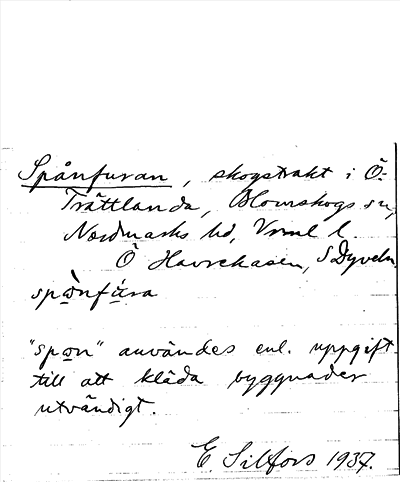 Spånfuran, skogstrakt i Ö.
Trättlanda, Blomskogs sn,
Nordmarks hd, Vrml l.
Ö Havrekasen, S Dyveln.
spo̱̊nfu̱ra
"spo̱n" användes enl. uppgift
till att kläda byggnader
utvändigt.
E. Sillfors 1937.